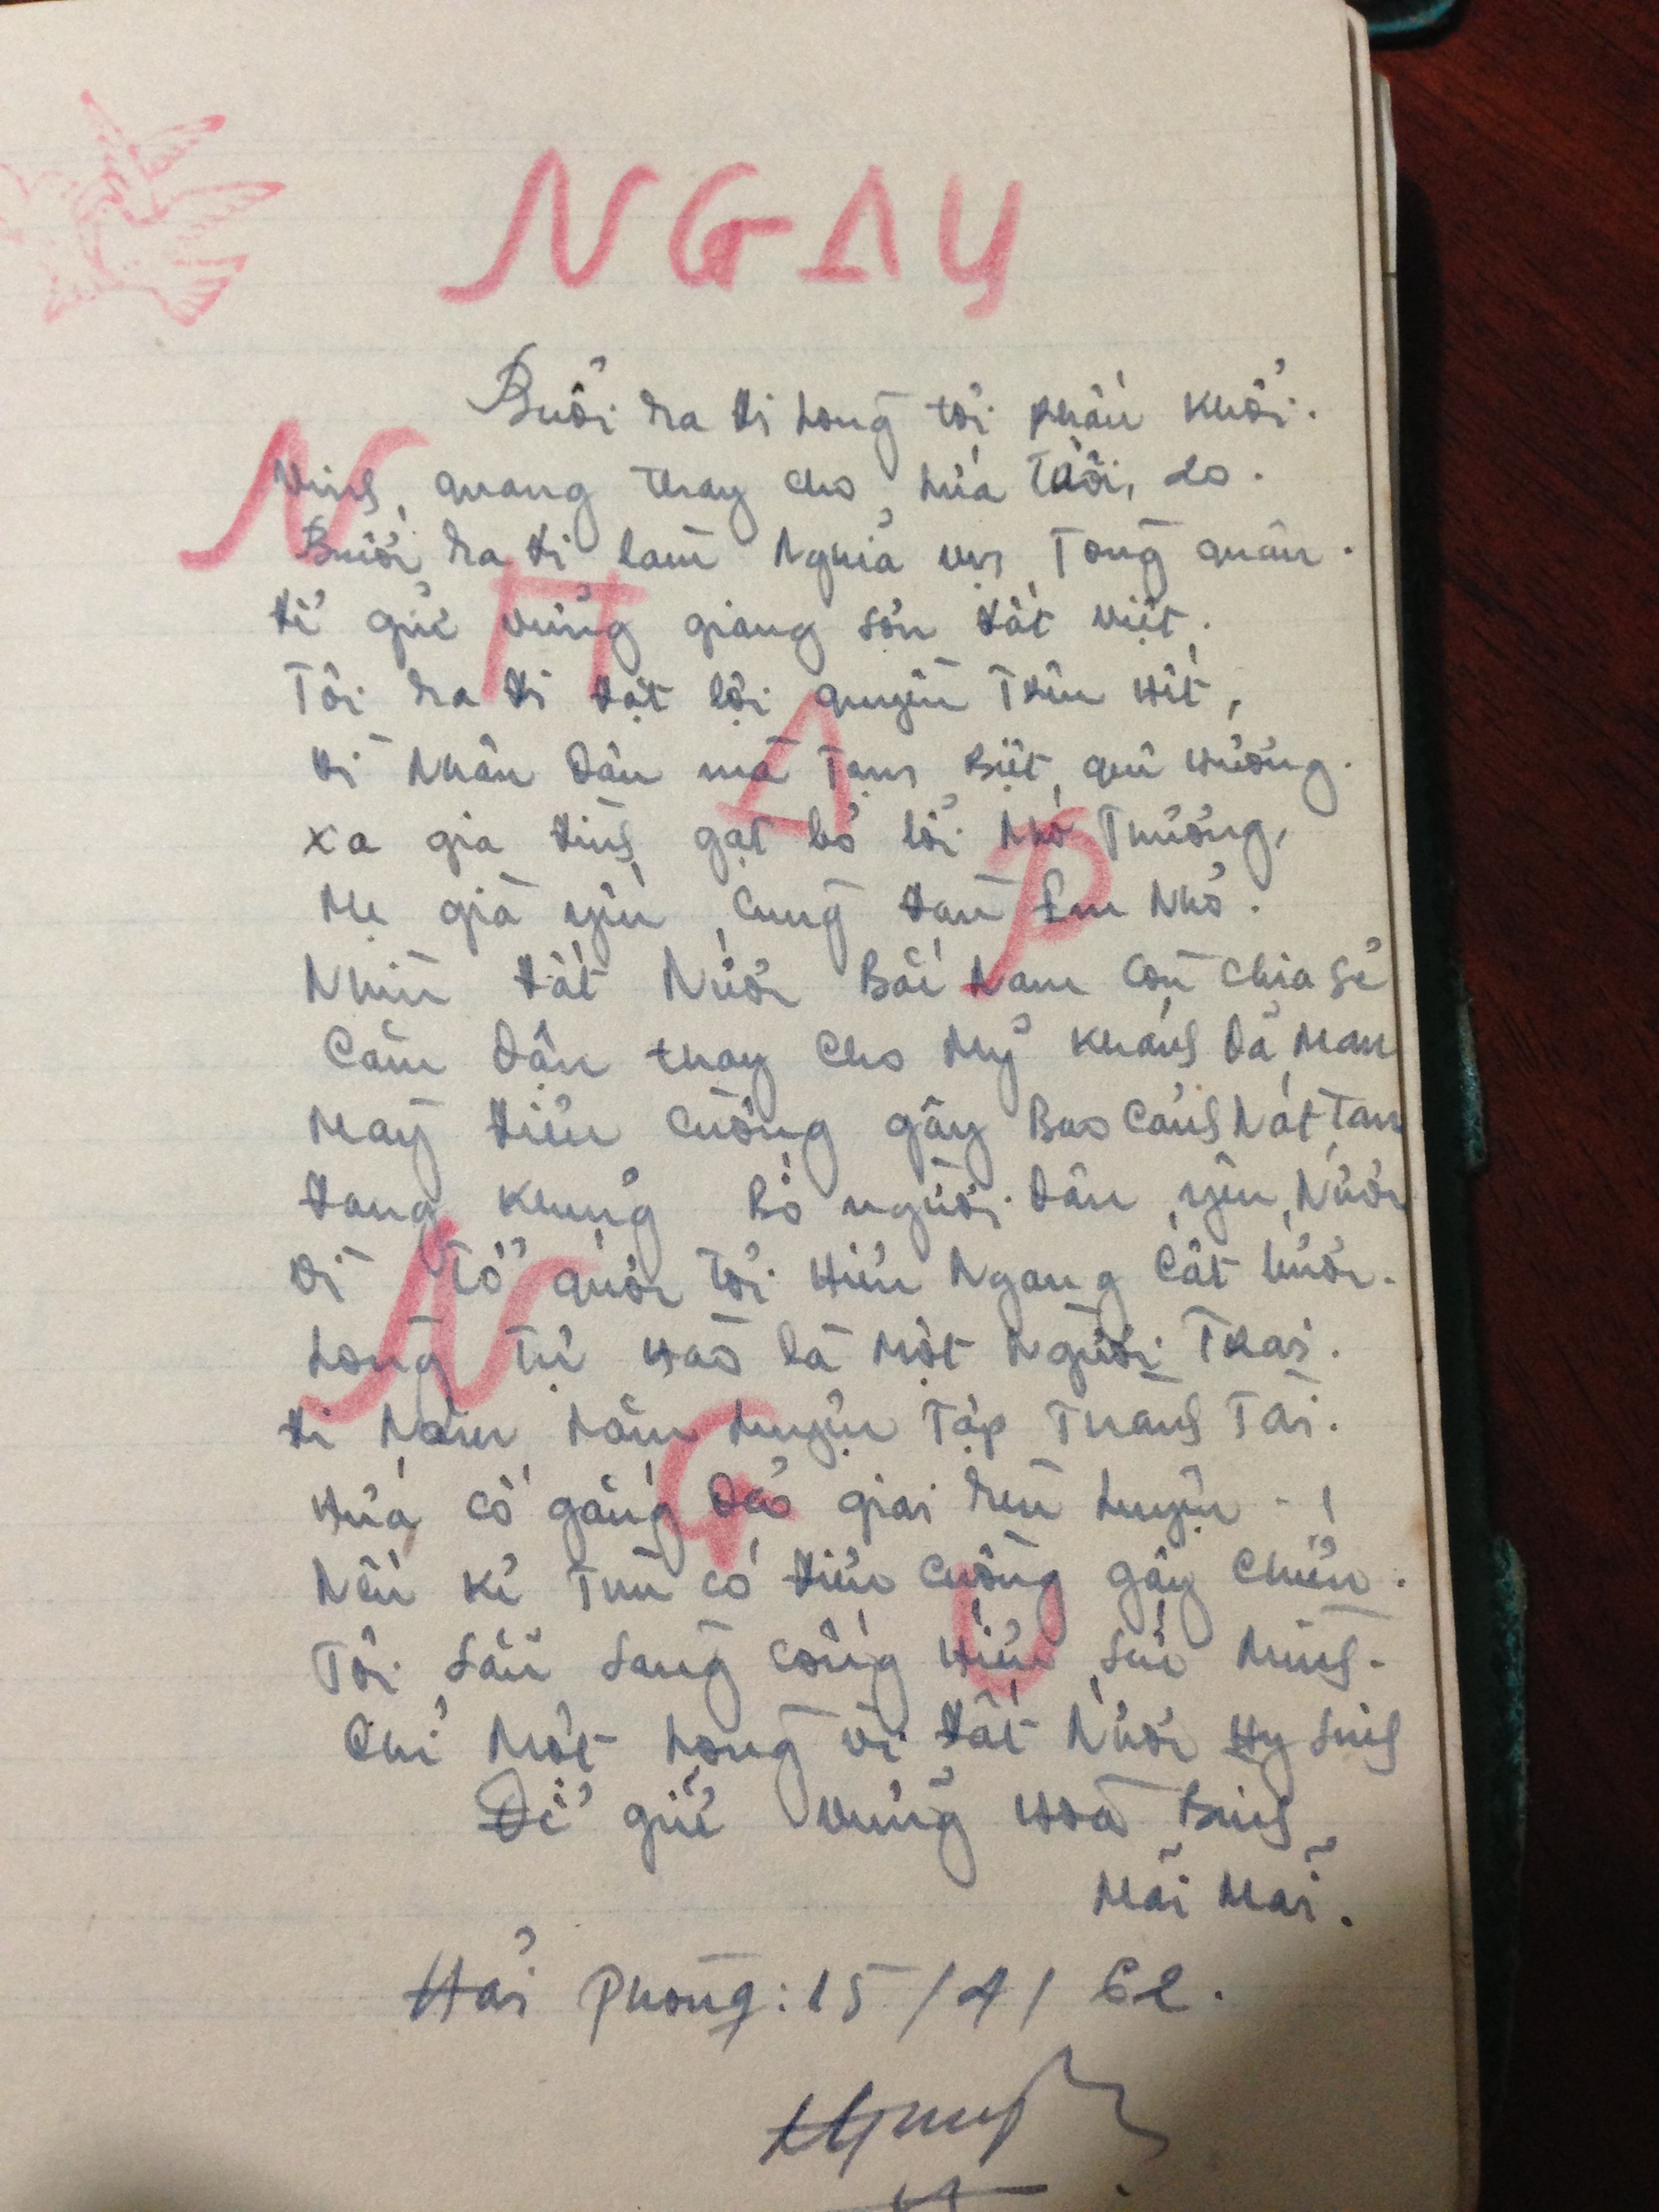 NGAY
Buổi ra đi long tôi phấn khởi.
Vinh quang thay cho lứa tuổi
Buổi ra đi lam Nghia vụ Tong quân.
để giữ vững giang sơn đất việt.
Tôi ra đi đặt lợi quyền Trên Hết,
Vì Nhân dân mà Tạm Biệt quê Hương.
xa gia đinh gạt bỏ lời Nhớ Thương,
Mẹ già yếu cung đan Em Nhỏ.
Nhìn đất Nước Bắc Nam Con Chia sẻ
Căm dận thay Cho Mỹ Khánh dã Man
May điên Cường gây Bao Cảnh Nát Tan
đang Khung Bố người dân yêu Nước
Vì Tổ quốc Tôi Hiên Ngang Cất bước.
Long Tự Hào là Một Người Trai.
đi Năm Năm Luyện Tập Thanh Tài.
Hứa cố gắng dẻo giai Rèn Luyện - !
Nếu Kẻ Thù có điên Cuồng gây Chiến.
Tôi Sẵn Sang Cống Hiến Sức Minh.
Chỉ Một Long Vì đất Nước Hy Sinh
Để giữ vững Hoà Binh
Mãi Mãi.
Hải Phong: 15/4/62.
N
H
Ậ
P
N
G
U